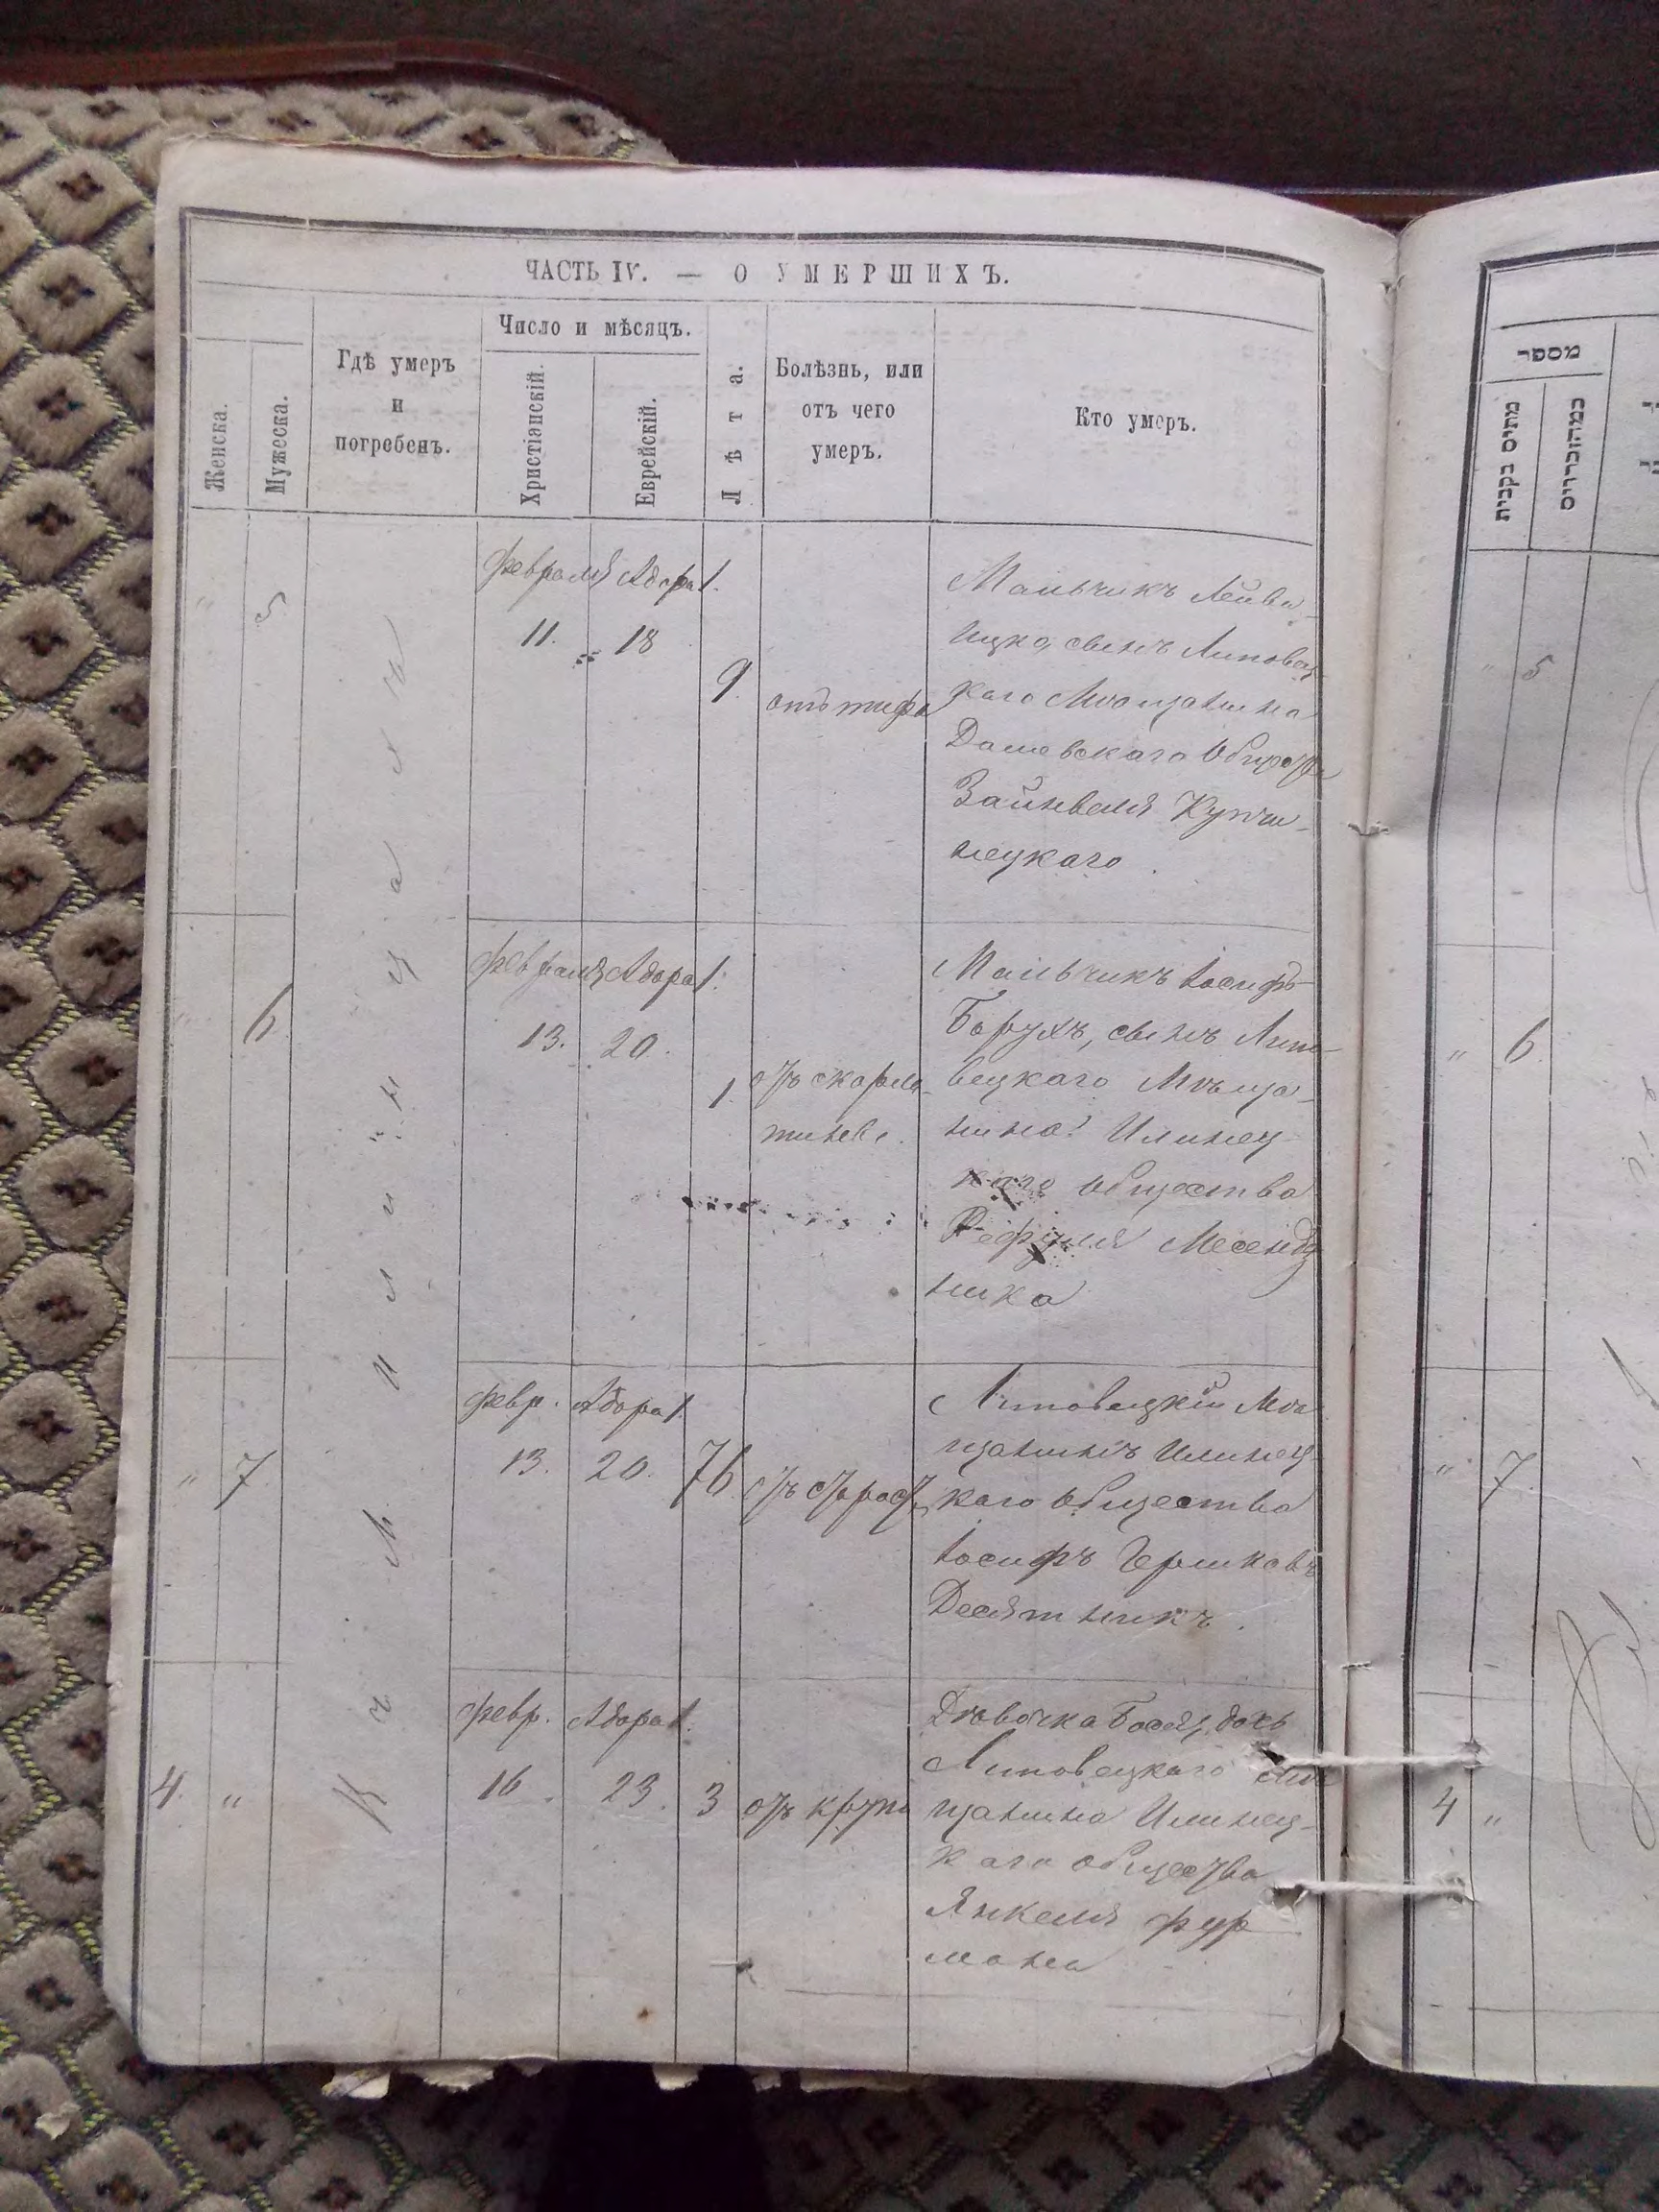 ЧАСТЬ IV. — О УМЕРШИХЪ.
Женска.
Мужеска.
Гдѣ умеръ
и
погребенъ.
Число и мѣсяцъ.
Христіанскій.
Еврейскій.
Лѣта.
Болѣзнь, или
отъ чего
умеръ.
Кто умеръ.
въ М. Илинцахъ
"
5
Февраля
11.
Адора 1.
18
9.
отъ тифа
Мальчикъ Лейба
Ицко, сынъ Липовец
каго Мѣщанина
Дашевскаго Общества
Зайнвеля Купчи-
нецкаго.
"
6
Февраля
13.
Адора 1.
20.
1.
отъ скарла-
тины.
Мальчикъ Іосифъ
Борухъ, сынъ Липо-
вецкаго Мѣща-
нина Илинец
каго общества
Рефуля
ника
"
7
Февр.
13.
Адора 1.
20.
76.
отъ старости
Липовецкій Мѣ
щанинъ Илинец-
каго общества
Іосифъ Гершковъ
Десятникъ.
4.
"
Февр.
16.
Адора 1.
23.
3
отъ крупа
Дѣвочка Бася, дочь
Липовецкаго Мѣ
щанина Илинец-
каго общества
Янкеля Фур
мана
מספר
מתים נקבות
5
"
6.
"
7.
"
4
"